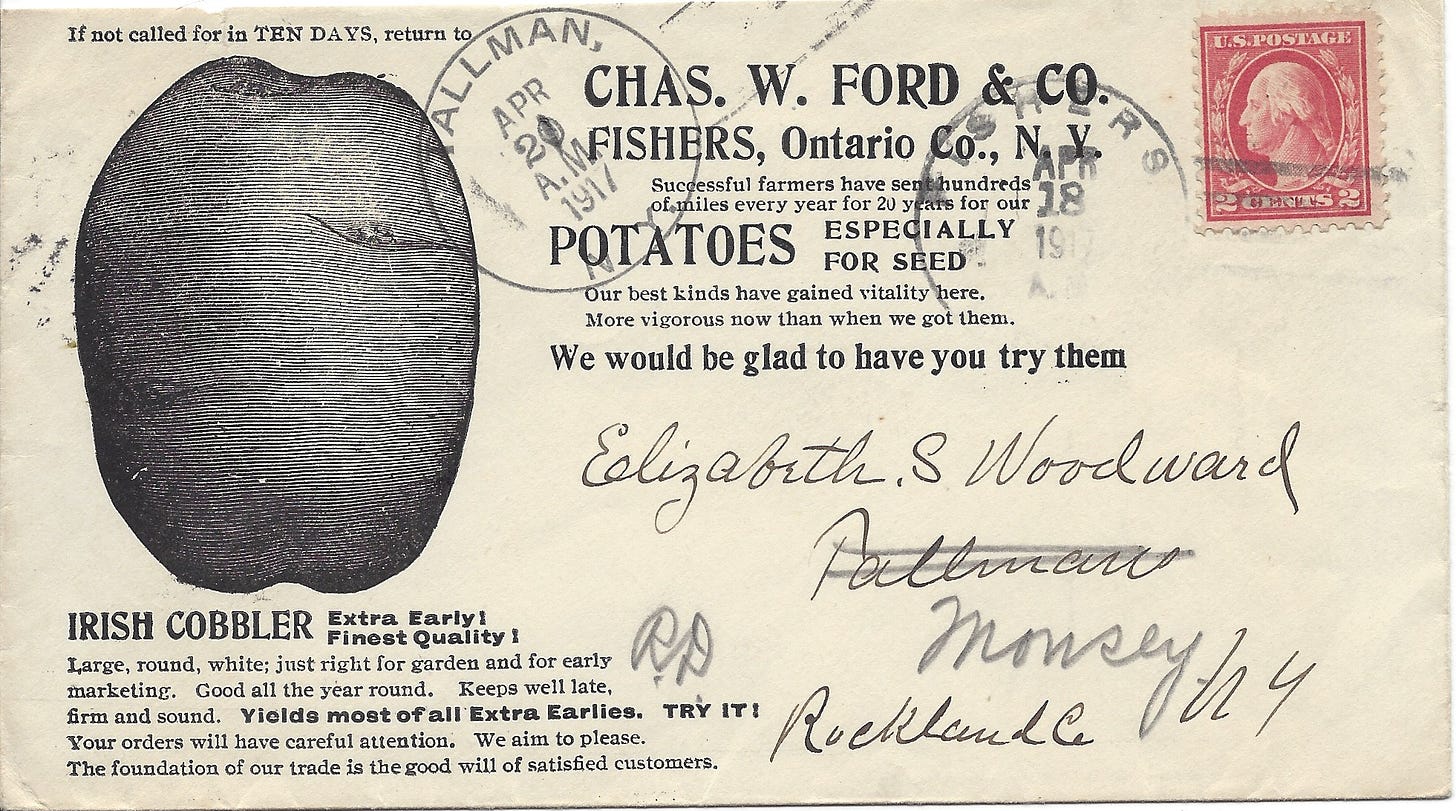 If not called for in TEN DAYS, return to
TALLMAN,
APR
20
A.M.
1917
N.Y.
CHAS. W. FORD & CO.
FISHERS, Ontario Co., N. Y.
Successful farmers have sent hundreds
of miles every year for 20 years for our
POTATOES ESPECIALLY
FOR SEED
Our best kinds have gained vitality here.
More vigorous now than when we got them.
We would be glad to have you try them
FISHERS
APR
18
1917
A.M.
U.S. POSTAGE
2 CENTS 2
Elizabeth. S Woodward
Tallmans
Monsey
R.D
Rockland Co N Y
IRISH COBBLER Extra Early!
Finest Quality!
Large, round, white; just right for garden and for early
marketing. Good all the year round. Keeps well late,
firm and sound. Yields most of all Extra Earlies. TRY IT!
Your orders will have careful attention. We aim to please.
The foundation of our trade is the good will of satisfied customers.